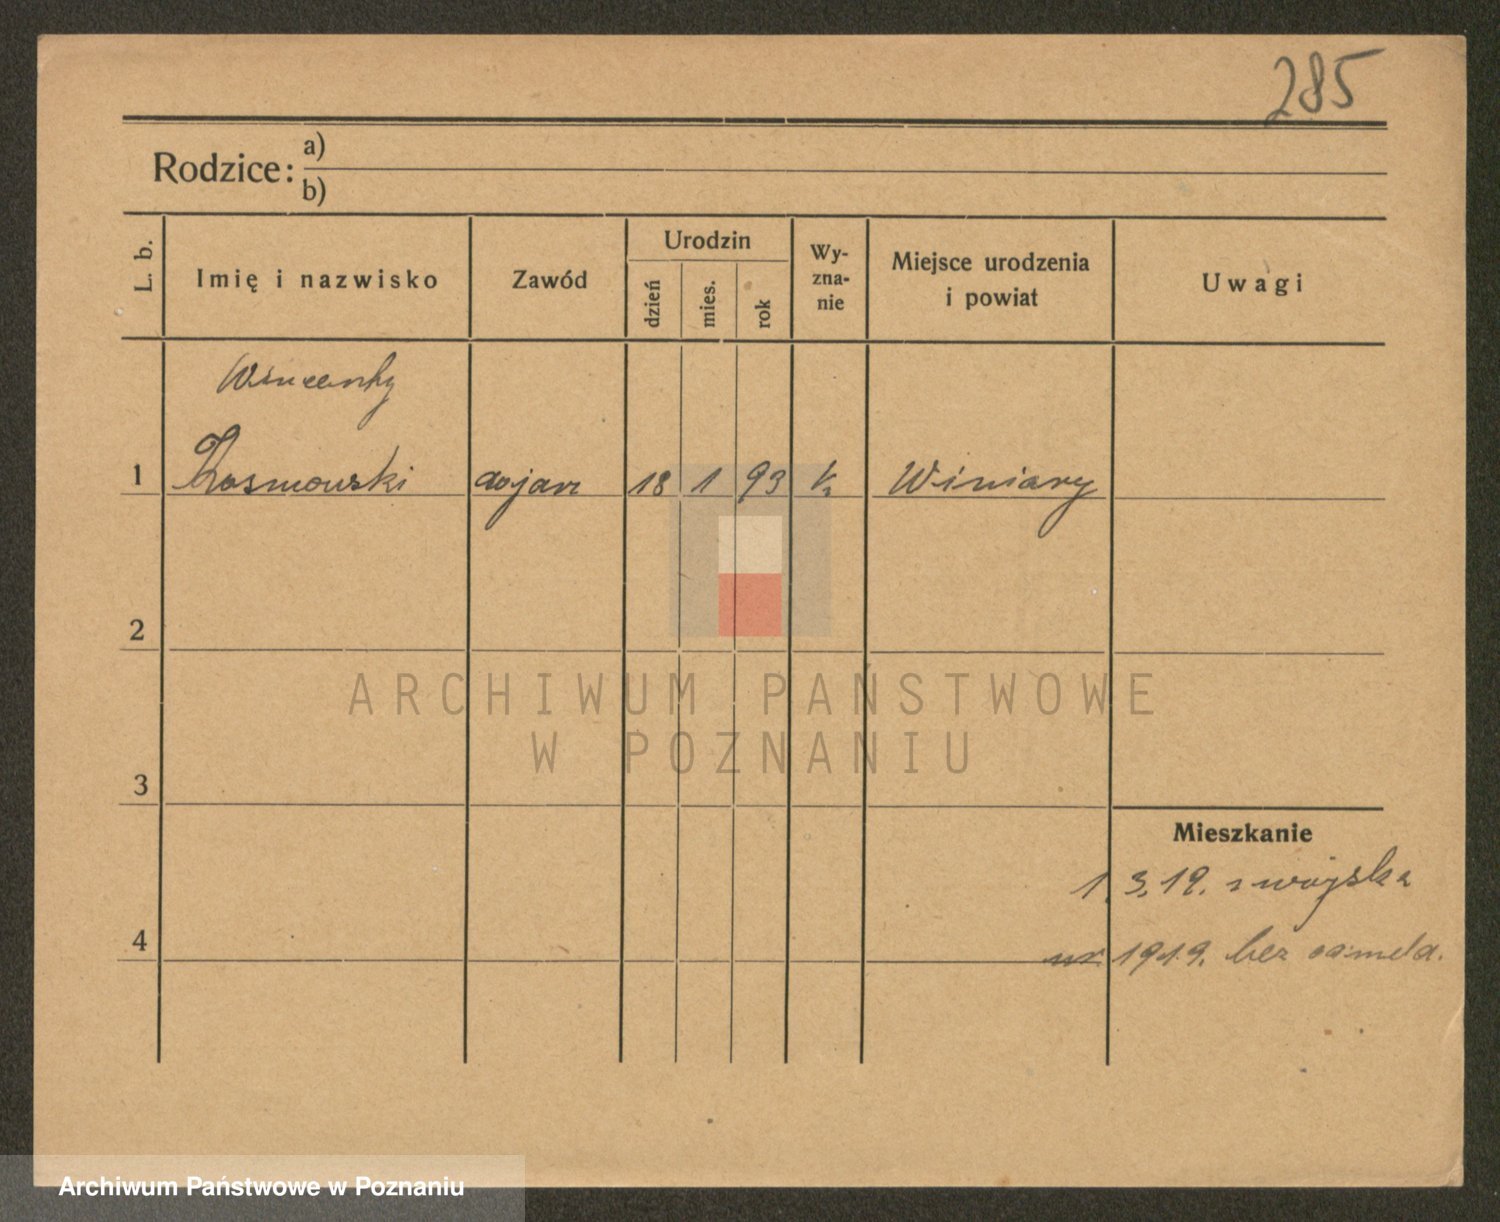 285
Rodzice:
a)
b)
L. b.
Imię i nazwisko
Zawód
Urodzin
dzień
mies.
rok
Wy-
zna-
nie
Miejsce urodzenia
i powiat
Uwagi
Wincenty
1 dojarz 18 1 93 Winiary
2
3
Mieszkanie
1.3.19. z wojska
4
1919. bez
ARCHIWUM PAŃSTWOWE
W POZNANIU
Archiwum Państwowe w Poznaniu